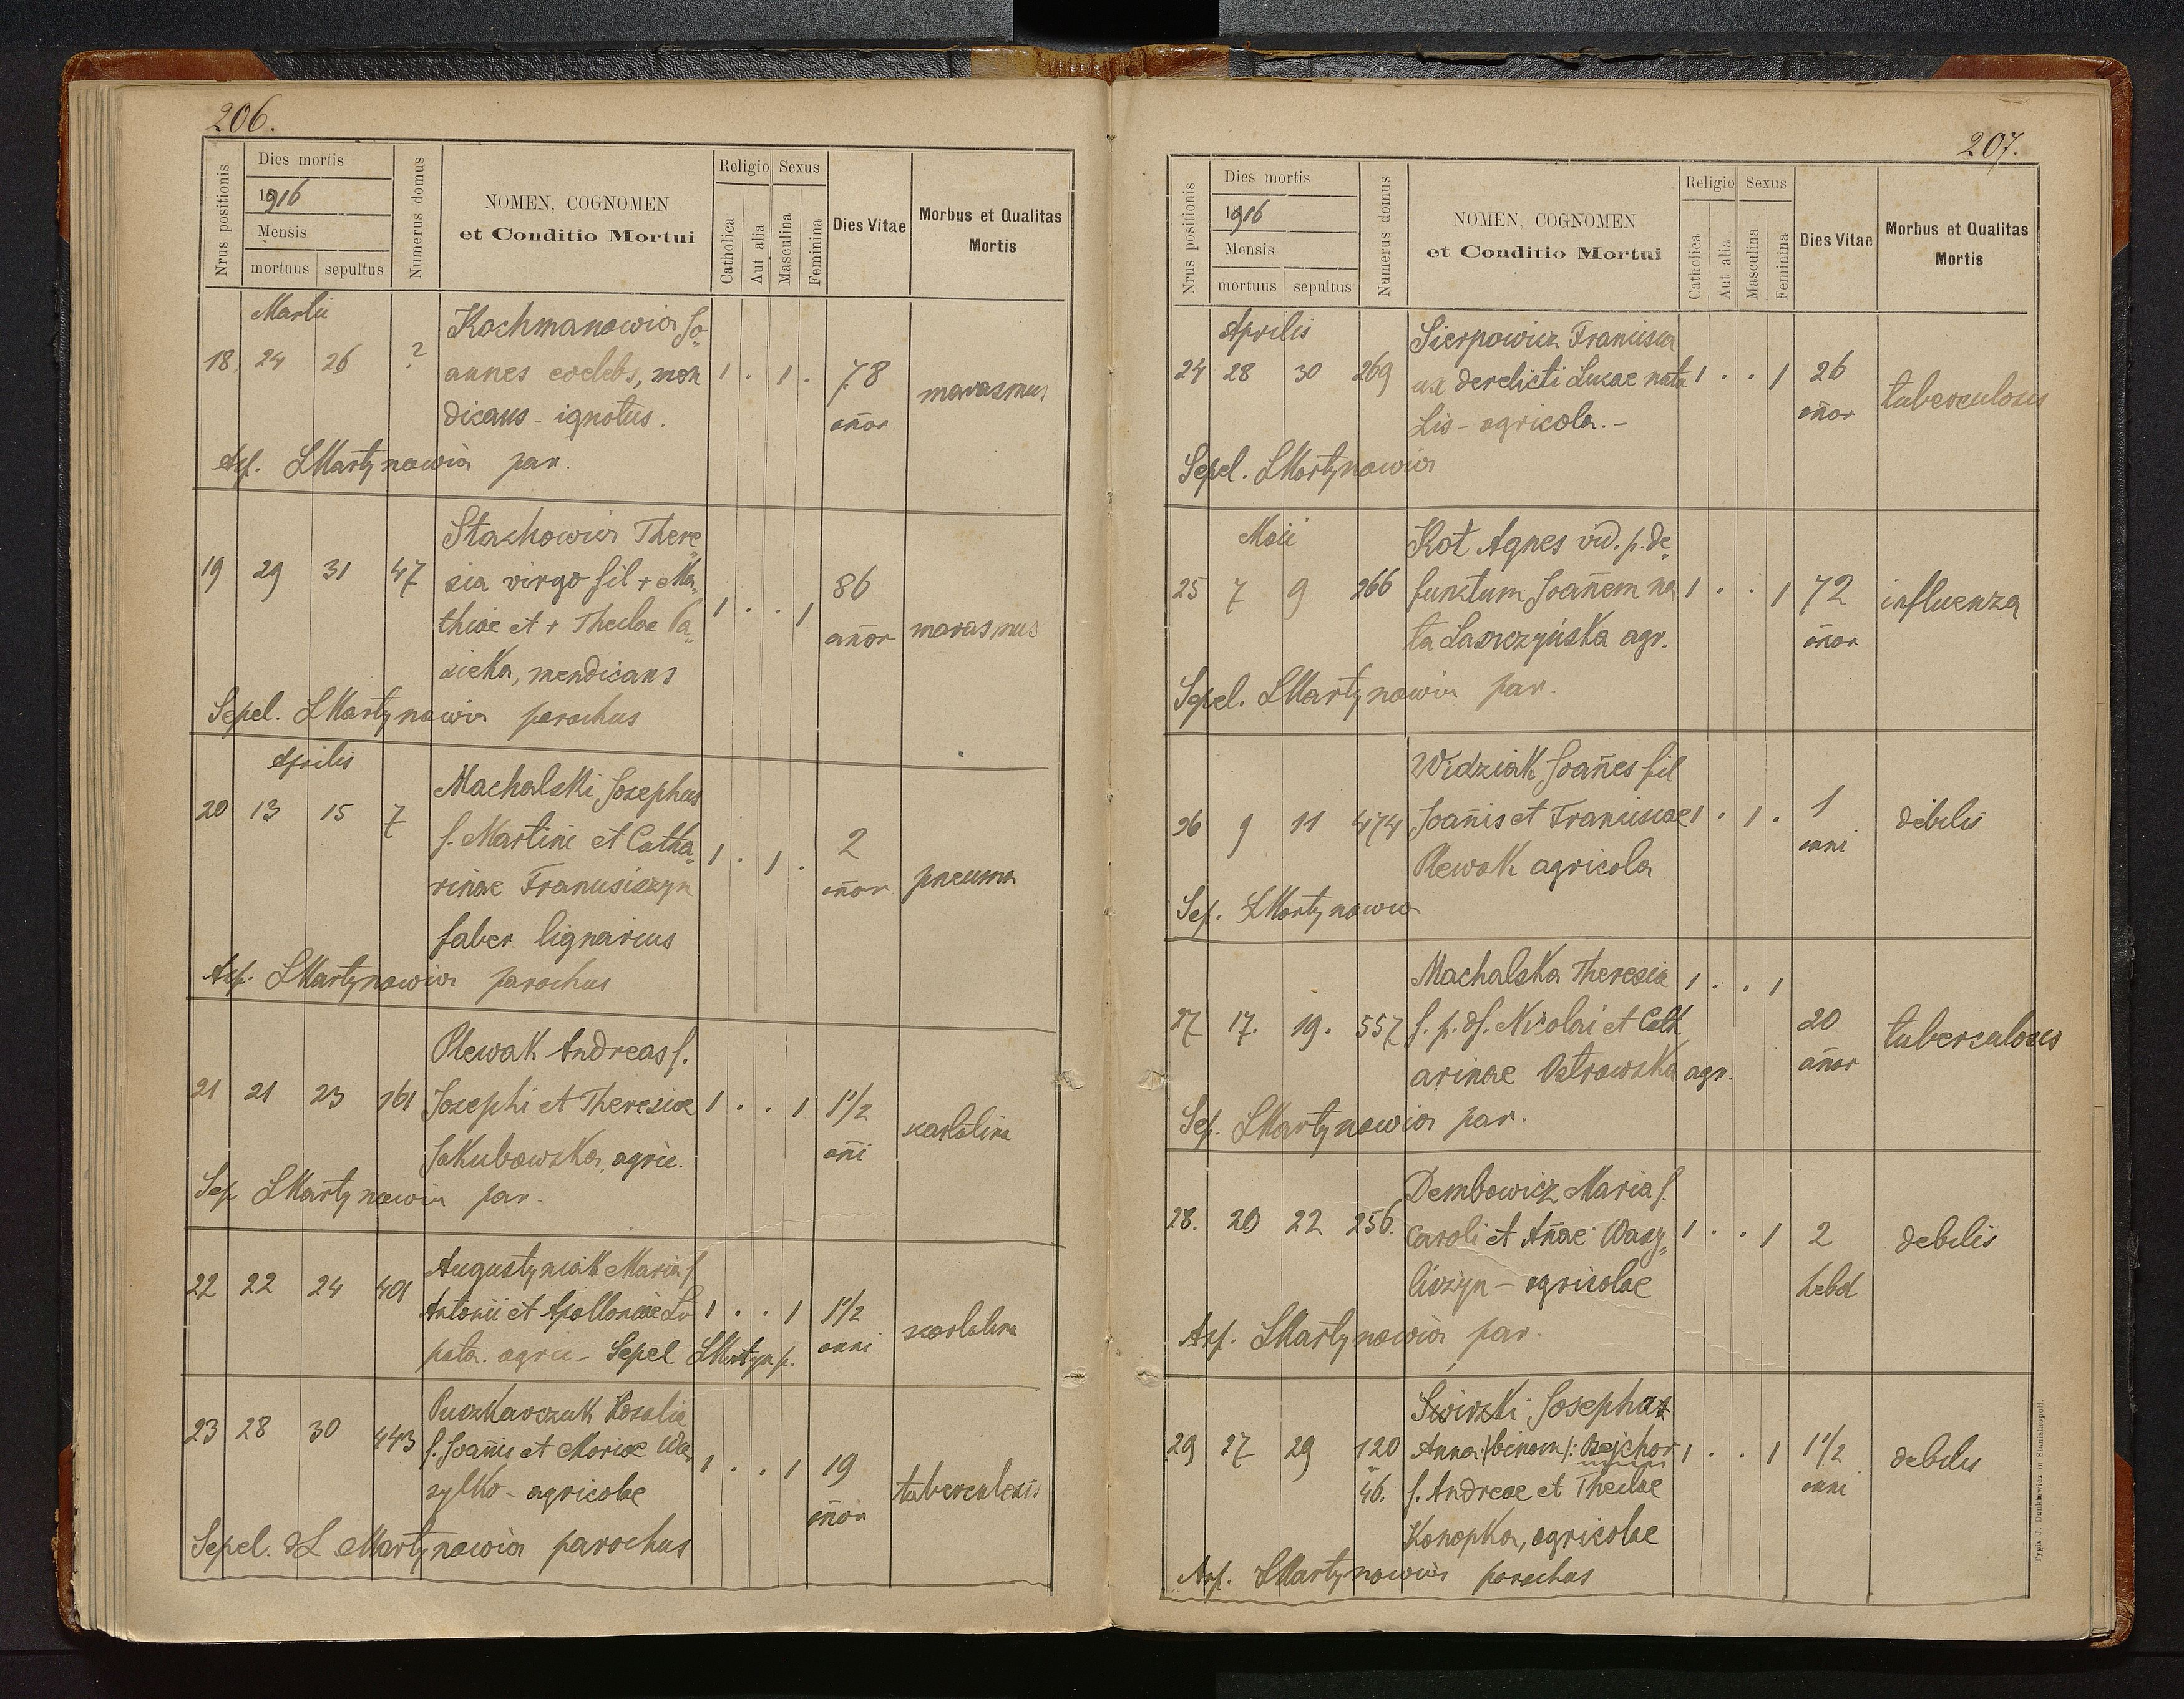 206.
Nrus positionis
Dies mortis
1916
Mensis
mortuus sepultus
Numerus domus
NOMEN, COGNOMEN
et Conditio Mortui
Religio Sexus
Catholica
Aut alia
Masculina
Feminina
Dies Vitae
Morbus et Qualitas
Mortis
Martii
18 24 26 ? Kochmanowicz Jo„
annes coelebs, men 1 . 1 . 78 marasmus
dicans - ignotus. añor
Asp. LMartynowicz par.
Stachowicz There„
19 29 31 47 sia virgo fil + Ma„ 86
thiae et + Theclae Pa„ 1 . . 1 añor marasmus
sieka, mendicans
Sepel. LMartynowicz parochus
Aprilis
Machalski Josephus
20 13 15 7 f. Martini et Catha„ 1 . 1 . 2
rinae Franusiszyn añor pneuma
faber lignarius
Asp. LMartynowicz parochus
Plewak Andreas f.
21 21 23 161 Josephi et Theresiae 1 . . 1 1 1/2 scarlatina
Jakubowska, agric. añi
Sep LMartynowicz par.
Augustyniak Maria f
22 22 24 401 Antonii et Apolloniae Lo 1 . . 1 1 1/2 scarlatina
pata. agric - Sepel LMartyn p. anni
Puszkarczuk Rosalia
23 28 30 443 f. Joañis et Mariae Wa„ 1 . . 1 19
sylko - agricolae añor tuberculosis
Sepel. L Martynowicz parochus
207.
Nrus positionis
Dies mortis
1916
Mensis
mortuus sepultus
Numerus domus
NOMEN, COGNOMEN
et Conditio Mortui
Religio Sexus
Catholica
Aut alia
Masculina
Feminina
Dies Vitae
Morbus et Qualitas
Mortis
Aprilis
Sierpowicz Francisca
24 28 30 269 ux derelicti Lucae nata 1 . . 1 26 tuberculosis
Lis - agricola. - añor
Sepel. LMartynowicz
Maii
Kot Agnes vid. p. de„
25 7 9 266 functum Joañem na 1 . . 1 72 influenza
ta Laszczyńska agr. añor
Sepel. LMartynowicz par.
Widziak Joañes fil
26 9 11 474 Joañis et Franciscae 1 . 1 . 1 debilis
Plewak agricola anni
Sep. LMartynowicz
Machalska Theresia 1 . . 1
27 17. 19. 557 f. p. df. Nicolai et Cath 20 tuberculosis
arinae Petrowska agr. añor
Sep. LMartynowicz par.
Dembowicz Maria f.
28. 20 22 256. Caroli et Añae Wasy„ 1 . . 1 2 debilis
liszyn - agricolae hebd
Asp. LMartynowicz par.
Świrski Josepha
29 27 29 120 Anna /binom/: 1 . . 1 1 1/2 debilis
46. f. Andreae et Theclae anni
Konopka, agricolae
Asp. LMartynowicz parochus
Typis J. Dankiewicz in Stanislaopoli.